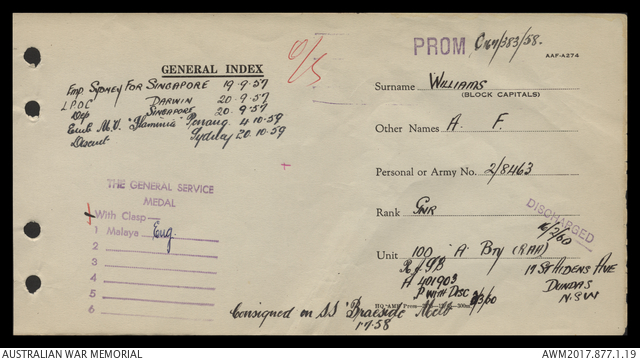 GENERAL INDEX
Emp SYDNEY FOR SINGAPORE 19.9.57
DARWIN 20.9.57
Dep SINGAPORE 20.9.57
Emb M.V. "Flaminia" Penang 4.10.59
Disemb Sydney 20.10.59
THE GENERAL SERVICE
MEDAL
With Clasp
1 Malaya Eng.
2
3
4
5
6
PROM
AAF-A274
Surname WILLIAMS
(BLOCK CAPITALS)
Other Names A. F.
Personal or Army No. 2/8463
Rank GNR
DISCHARGED
Unit 100 'A' Bty (RAA)
19 ST AIDENS AVE
DUNDAS
N.S.W
R of G.B
A 401903
P WITH DISC 2/3/60
Consigned on SS "Braeside" Melb
1.7.58
AUSTRALIAN WAR MEMORIAL
AWM2017.877.1.19